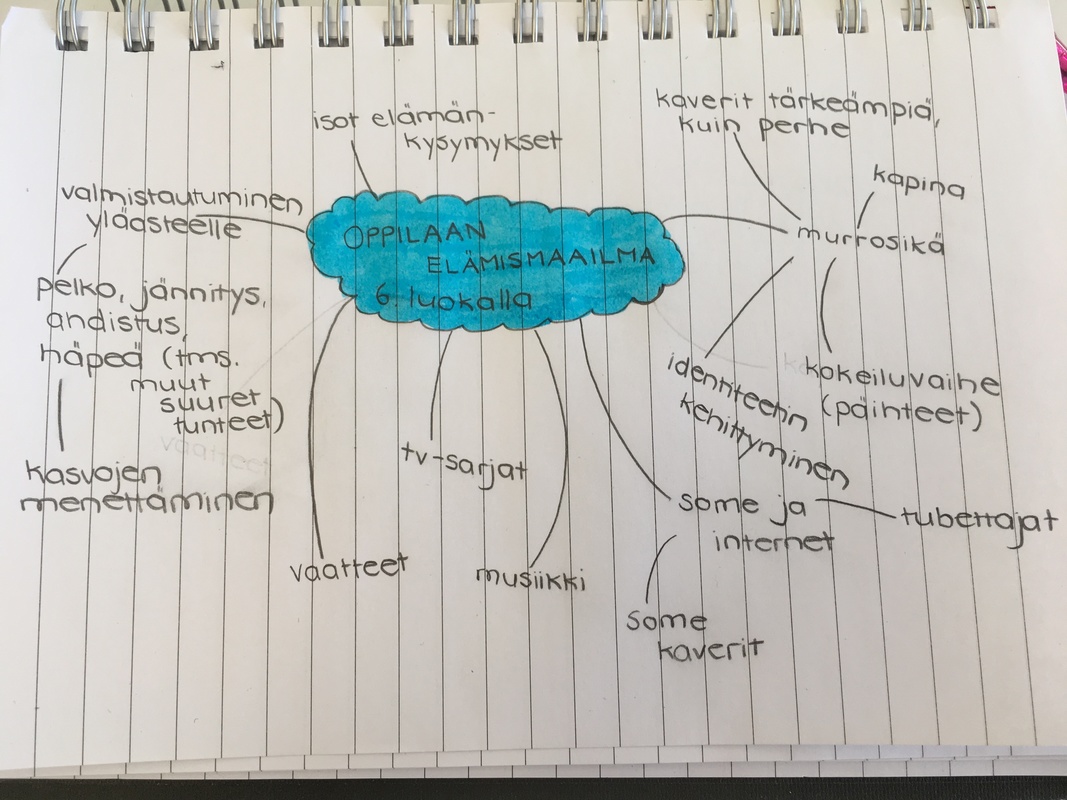 isot elämän-
kysymykset
kaverit tärkeämpiä,
kuin perhe
kapina
murrosikä
valmistautuminen
yläasteelle
OPPILAAN
ELÄMISMAAILMA
6. luokalla
pelko, jännitys,
ahdistus,
häpeä (tms.
muut
suuret
tunteet)
kasvojen
menettäminen
identiteetin
kehittyminen
kokeiluvaihe
(päihteet)
tv-sarjat
vaatteet
vaatteet
musiikki
some ja
internet
tubettajat
some
kaverit